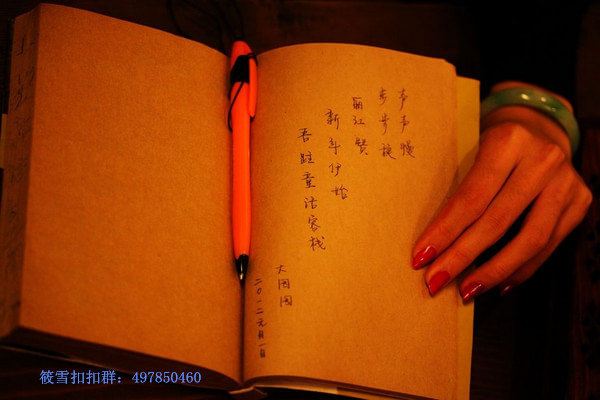 声声慢
步步
丽江
新年伊始
吾驻童话客栈
大
二〇一二元月一日
筱雪扣扣群：497850460